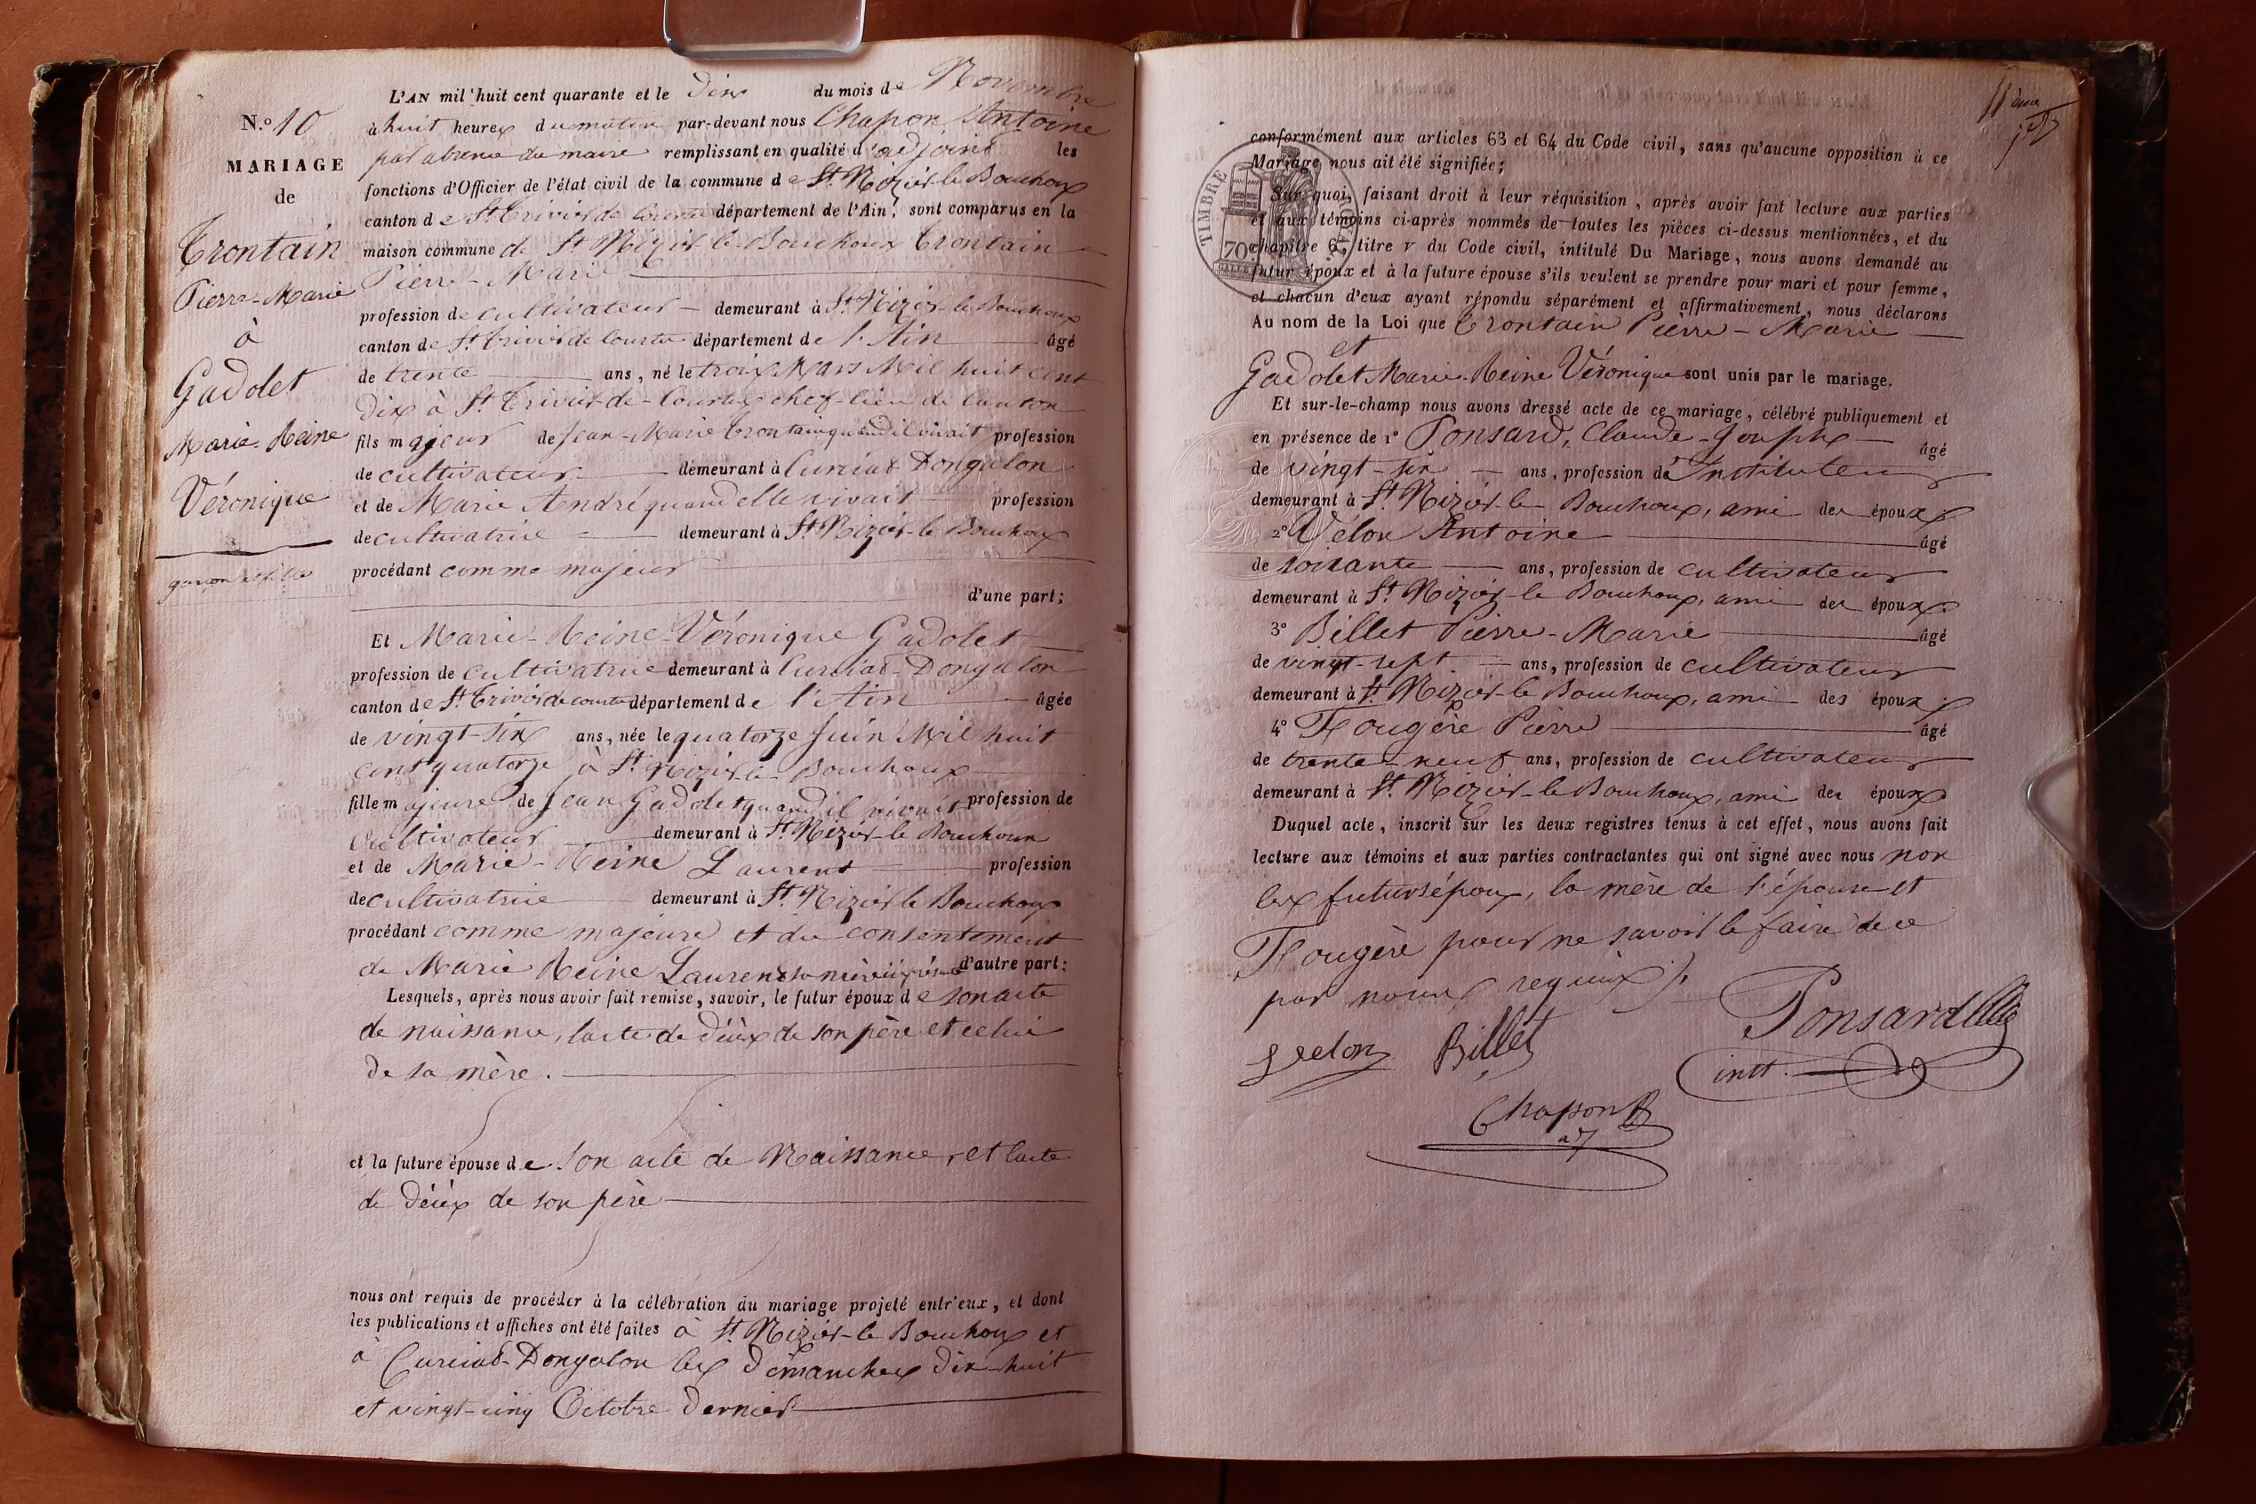 N.º 10
MARIAGE
de
Trontain
Pierre-Marie
à
Gadolet
Marie-Reine
Véronique
garçon et fille
L'AN mil huit cent quarante et le dix du mois de Novembre
à huit heures du matin par-devant nous Chapon, Antoine
par absence du maire remplissant en qualité d'adjoint les
fonctions d'Officier de l'état civil de la commune de St Nizier-le-Bouchoux
canton de St Trivier de Courtes département de l'Ain, sont comparus en la
maison commune de St Nizier-le-Bouchoux Trontain
Pierre-Marie
profession de cultivateur demeurant à St Nizier-le-Bouchoux
canton de St Trivier de Courtes département de l'Ain âgé
de trente ans, né le trois Mars Mil huit cent
dix à St Trivier-de-Courtes chef-lieu de canton
fils majeur de Jean-Marie Trontain quand il vivait profession
de cultivateur demeurant à Curciat-Dongalon
et de Marie André quand elle vivait profession
de cultivatrice demeurant à St Nizier-le-Bouchoux
procédant comme majeur
d'une part;
Et Marie-Reine-Véronique Gadolet
profession de cultivatrice demeurant à Curciat-Dongalon
canton de St Trivier de Courtes département de l'Ain âgée
de vingt-six ans, née le quatorze Juin Mil huit
cent quatorze à St Nizier-le-Bouchoux
fille majeure de Jean Gadolet quand il vivait profession de
cultivateur demeurant à St Nizier-le-Bouchoux
et de Marie-Reine Laurent profession
de cultivatrice demeurant à St Nizier-le-Bouchoux
procédant comme majeure et du consentement
de Marie Reine Laurent sa mère ici présente d'autre part:
Lesquels, après nous avoir fait remise, savoir, le futur époux de son acte
de naissance, l'acte de décès de son père et celui
de sa mère.
et la future épouse de son acte de Naissance, et l'acte
de décès de son père
nous ont requis de procéder à la célébration du mariage projeté entr'eux, et dont
les publications et affiches ont été faites à St Nizier-le-Bouchoux et
à Curciat-Dongalon les dimanches dix-huit
et vingt-cinq Octobre dernier
11ème
conformément aux articles 63 et 64 du Code civil, sans qu'aucune opposition à ce
Mariage nous ait été signifiée;
TIMBRE ROYAL
70c
Sur quoi, faisant droit à leur réquisition, après avoir fait lecture aux parties
et aux témoins ci-après nommés de toutes les pièces ci-dessus mentionnées, et du
chapitre 6, titre v du Code civil, intitulé Du Mariage, nous avons demandé au
futur époux et à la future épouse s'ils veulent se prendre pour mari et pour femme,
et chacun d'eux ayant répondu séparément et affirmativement, nous déclarons
Au nom de la Loi que Trontain Pierre-Marie
et
Gadolet Marie-Reine Véronique sont unis par le mariage.
Et sur-le-champ nous avons dressé acte de ce mariage, célébré publiquement et
en présence de 1º Ponsard, Claude-Joseph âgé
de vingt-six ans, profession d'Instituteur
demeurant à St Nizier-le-Bouchoux, ami des époux
2º Vélon Antoine âgé
de soixante ans, profession de cultivateur
demeurant à St Nizier-le-Bouchoux, ami des époux
3º Billet Pierre-Marie âgé
de vingt-sept ans, profession de cultivateur
demeurant à St Nizier-le-Bouchoux, ami des époux
4º Fougère Pierre âgé
de trente-neuf ans, profession de cultivateur
demeurant à St Nizier-le-Bouchoux, ami des époux
Duquel acte, inscrit sur les deux registres tenus à cet effet, nous avons fait
lecture aux témoins et aux parties contractantes qui ont signé avec nous non
les futurs époux, la mère de l'épouse et
Fougère pour ne savoir le faire de ce
par nous requis.
Ponsard
Velon Billet
instr
Chapon
adj